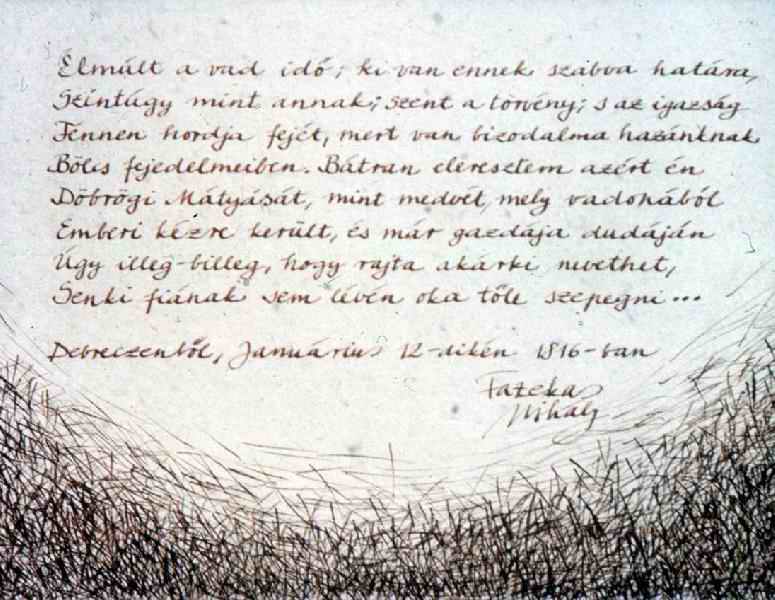 Elmúlt a vad idő; ki van ennek szabva határa,
Szintúgy mint annak; szent a törvény; s az igazság
Fennen hordja fejét, mert van bizodalma hazánknak
Bölcs fejedelmeiben. Bátran eleresztem azért én
Döbrögi Mátyását, mint medvét, mely vadonából
Emberi kézre került, és már gazdája dudáján
Úgy illeg-billeg, hogy rajta akárki nevethet,
Senki fiának sem lévén oka tőle szepegni...
Debreczenből, Januárius 12-dikén 1816-ban
Fazekas
Mihály